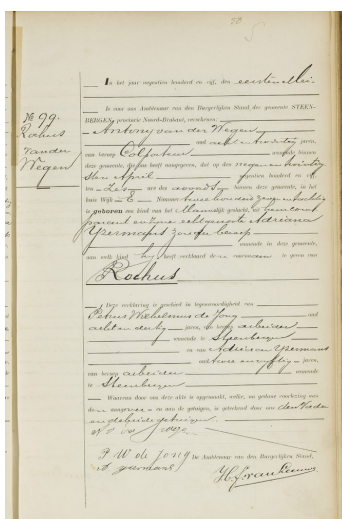 In het jaar negentien honderd en elf, den eersten Mei
is voor ons Ambtenaar van den Burgerlijken Stand der gemeente STEEN-
BERGEN, provincie Noord-Brabant, verschenen:
Antony van der Wegen
oud acht en twintig jaren,
van beroep wonende binnen
deze gemeente, die heeft aangegeven, dat op den negen en twintig
sten April negentien honderd en elf
ten zes ure des avonds binnen deze gemeente, in het
huis Wijk E Nummer twee honderd zeven en tachtig
is geboren een kind van het Mannelijk geslacht, uit
zijne echtgenoote Adriana
IJzermans zonder beroep
wonende in deze gemeente,
aan welk kind hij heeft verklaard de voornaam te geven van
Rochus
Deze verklaring is geschied in tegenwoordigheid van
Petrus Wilhelmus de Jong oud
acht en dertig jaren, van beroep arbeider
wonende te Steenbergen
en van Adriaan IJzermans
oud twee en vijftig jaren,
van beroep arbeider wonende
te Steenbergen
Waarvan door ons deze akte is opgemaakt, welke, na gedane voorlezing aan
de aangever en aan de getuigen, is geteekend door ons, den Vader
en de beide getuigen.
P W de Jong De Ambtenaar van den Burgerlijken Stand,
No 99.
Rochus
van der
Wegen